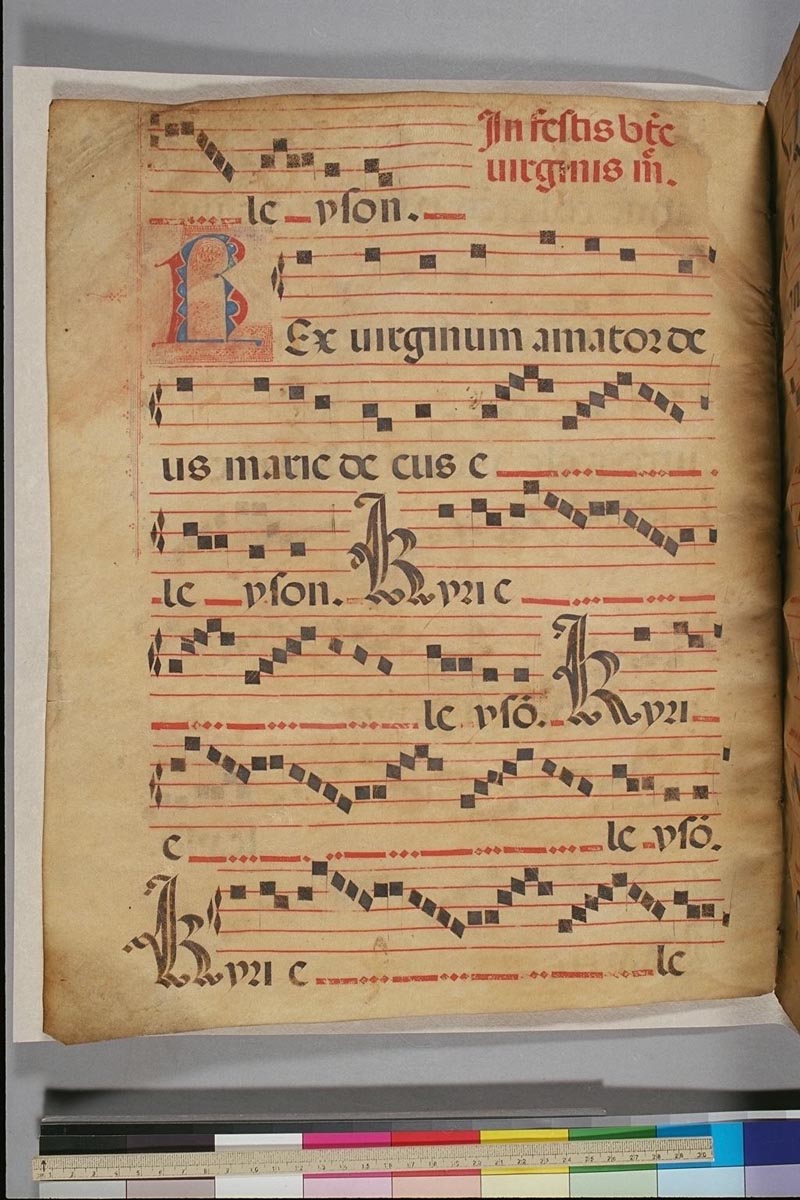 In festis bte
uirginis m.
le yson.
REx uirginum amator de
us marie de cus e
le yson. Kyri e
le ysō. Kyri
e le ysō.
Kyri e le